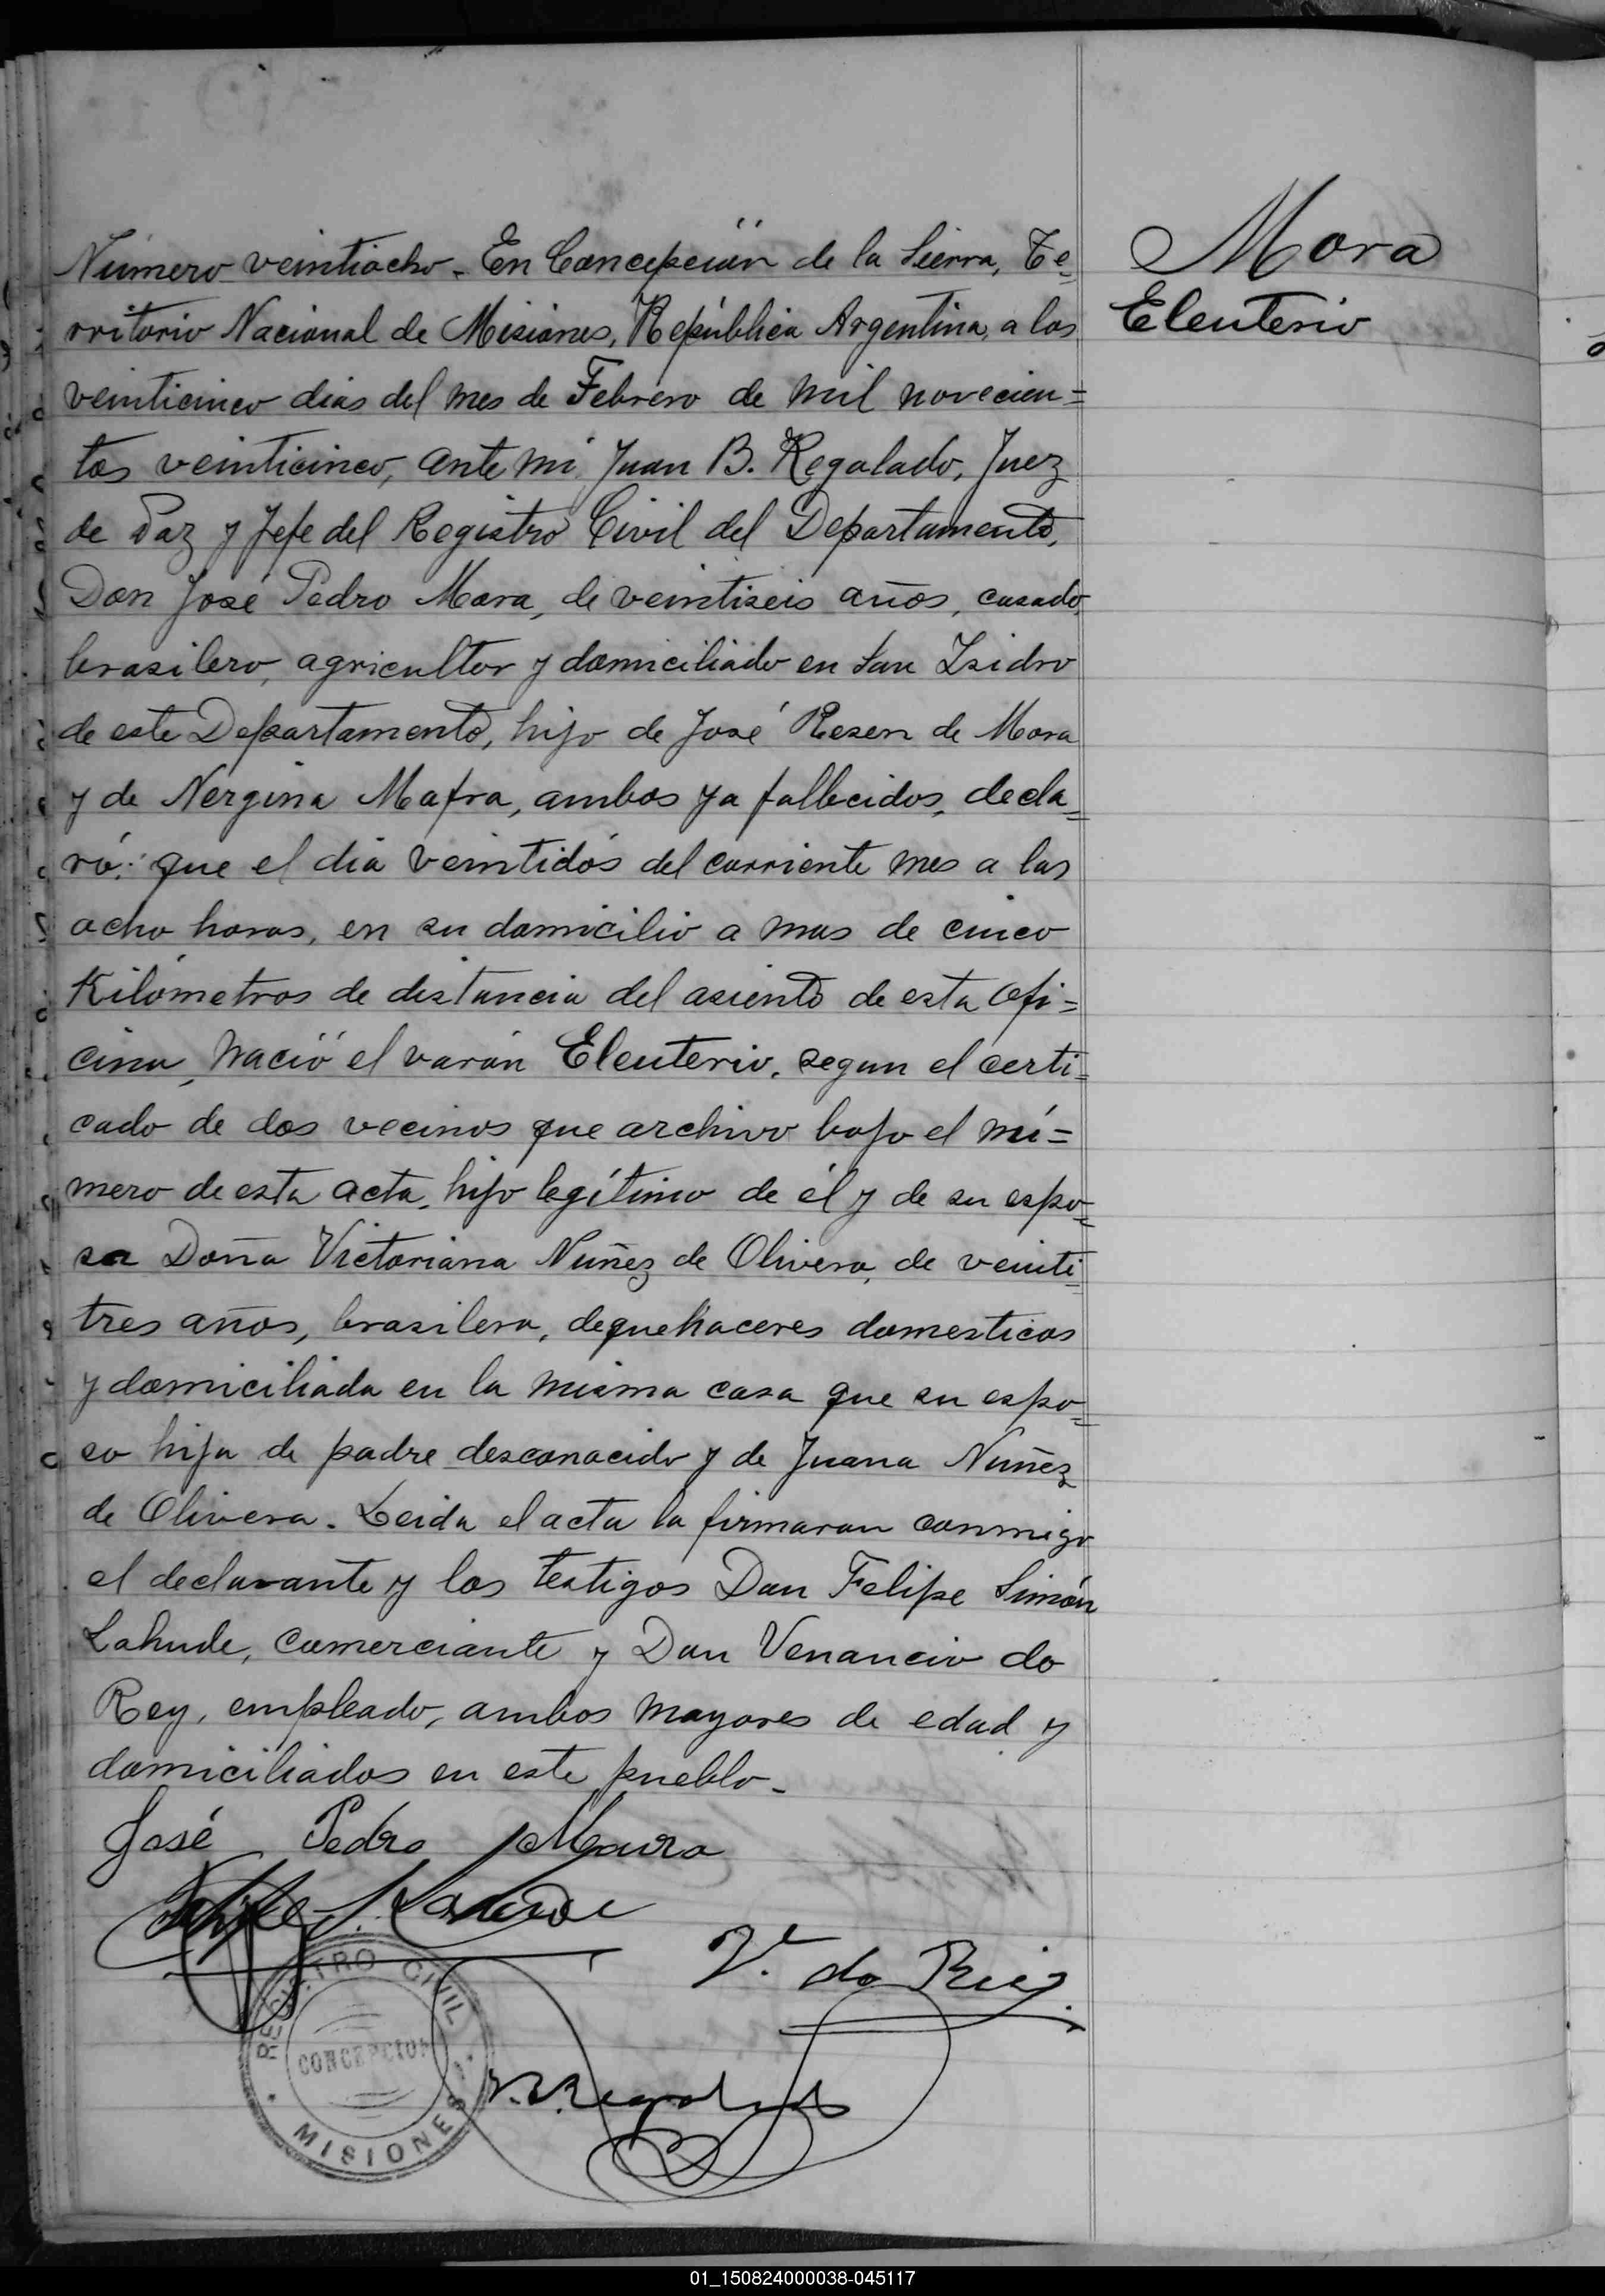 Mora
Eleuterio
Número veintiocho. En Concepción de la Sierra, Te-
rritorio Nacional de Misiones, República Argentina, a los
veinticinco dias del mes de Febrero de mil novecien=
tos veinticinco, ante mi, Juan B. Regalado, Juez
de Paz y Jefe del Registro Civil del Departamento,
Don José Pedro Mora, de veintiseis años, casado,
brasilero, agricultor y domiciliado en San Isidro
de este Departamento, hijo de José Resen de Mora
y de Nergina Mafra, ambos ya fallecidos, decla=
ró: que el dia veintidós del corriente mes a las
ocho horas, en su domicilio a mas de cinco
Kilómetros de distancia del asiento de esta Ofi=
cina, nació el varón Eleuterio, segun el certi=
cado de dos vecinos que archivo bajo el nú=
mero de esta acta, hijo legítimo de él y de su espo=
sa Doña Victoriana Nuñez de Olivera, de veinti=
tres años, brasilera, de quehaceres domesticos
y domiciliada en la misma casa que su espo=
so hija de padre desconocido y de Juana Nuñez
de Olivera. Leida el acta la firmaron conmigo
el declarante y los testigos Don Felipe Simón
Lahude, comerciante y Don Venancio do
Rey, empleado, ambos mayores de edad y
domiciliados en este pueblo.
José Pedro Moura
V.e do Rey
REGISTRO CIVIL
CONCEPCION
MISIONES
01_150824000038-045117